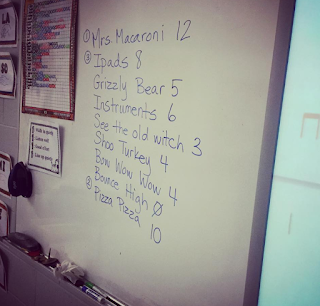 ① Mrs. Macaroni 12
② Ipads 8
Grizzly Bear 5
Instruments 6
See the old witch 3
Shoo Turkey 4
Bow Wow Wow 4
Bounce High Ø
② Pizza Pizza 10